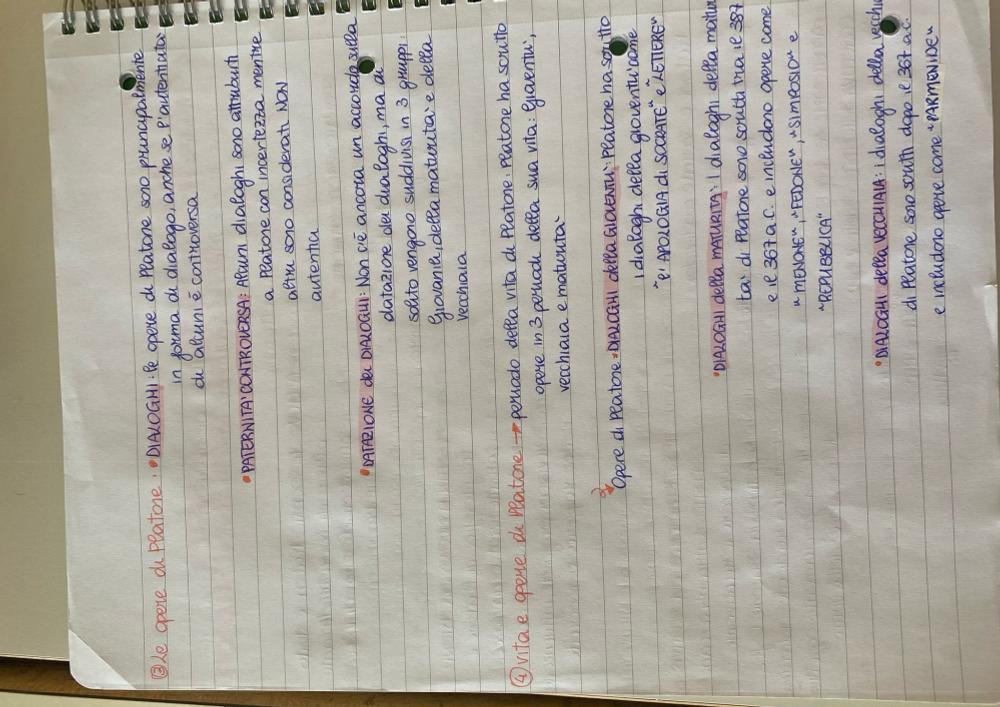 ③ Le opere di Platone: •DIALOGHI: le opere di Platone sono principalmente
in forma di dialogo, anche se l'autenticità
di alcuni é controversa
•PATERNITA' CONTROVERSA: Alcuni dialoghi sono attribuiti
a Platone con incertezza mentre
altri sono considerati NON
autentici
•DATAZIONE dei DIALOGHI: Non c'é ancora un accordo sulla
datazione dei dialoghi, ma di
solito vengono suddivisi in 3 gruppi:
Giovanili, della maturita' e della
vecchiaia
④ vita e opere di Platone → periodo della vita di Platone: Platone ha scritto
opere in 3 periodi della sua vita: Gioventu',
vecchiaia e maturita'
Opere di Platone: •DIALOGHI della GIOVENTU': Platone ha scritto
i dialoghi della gioventù come
"l'APOLOGIA di SOCRATE" e "LETTERE"
•DIALOGHI della MATURITA': I dialoghi della matur
ta' di Platone sono scritti tra il 387
e il 367 a.C. e includono opere come
"MENONE", "FEDONE", "SIMPOSIO" e
"REPUBBLICA"
•DIALOGHI della VECCHIAIA: i dialoghi della vecchia
di Platone sono scritti dopo il 367 a.C.
e includono opere come "PARMENIDE"